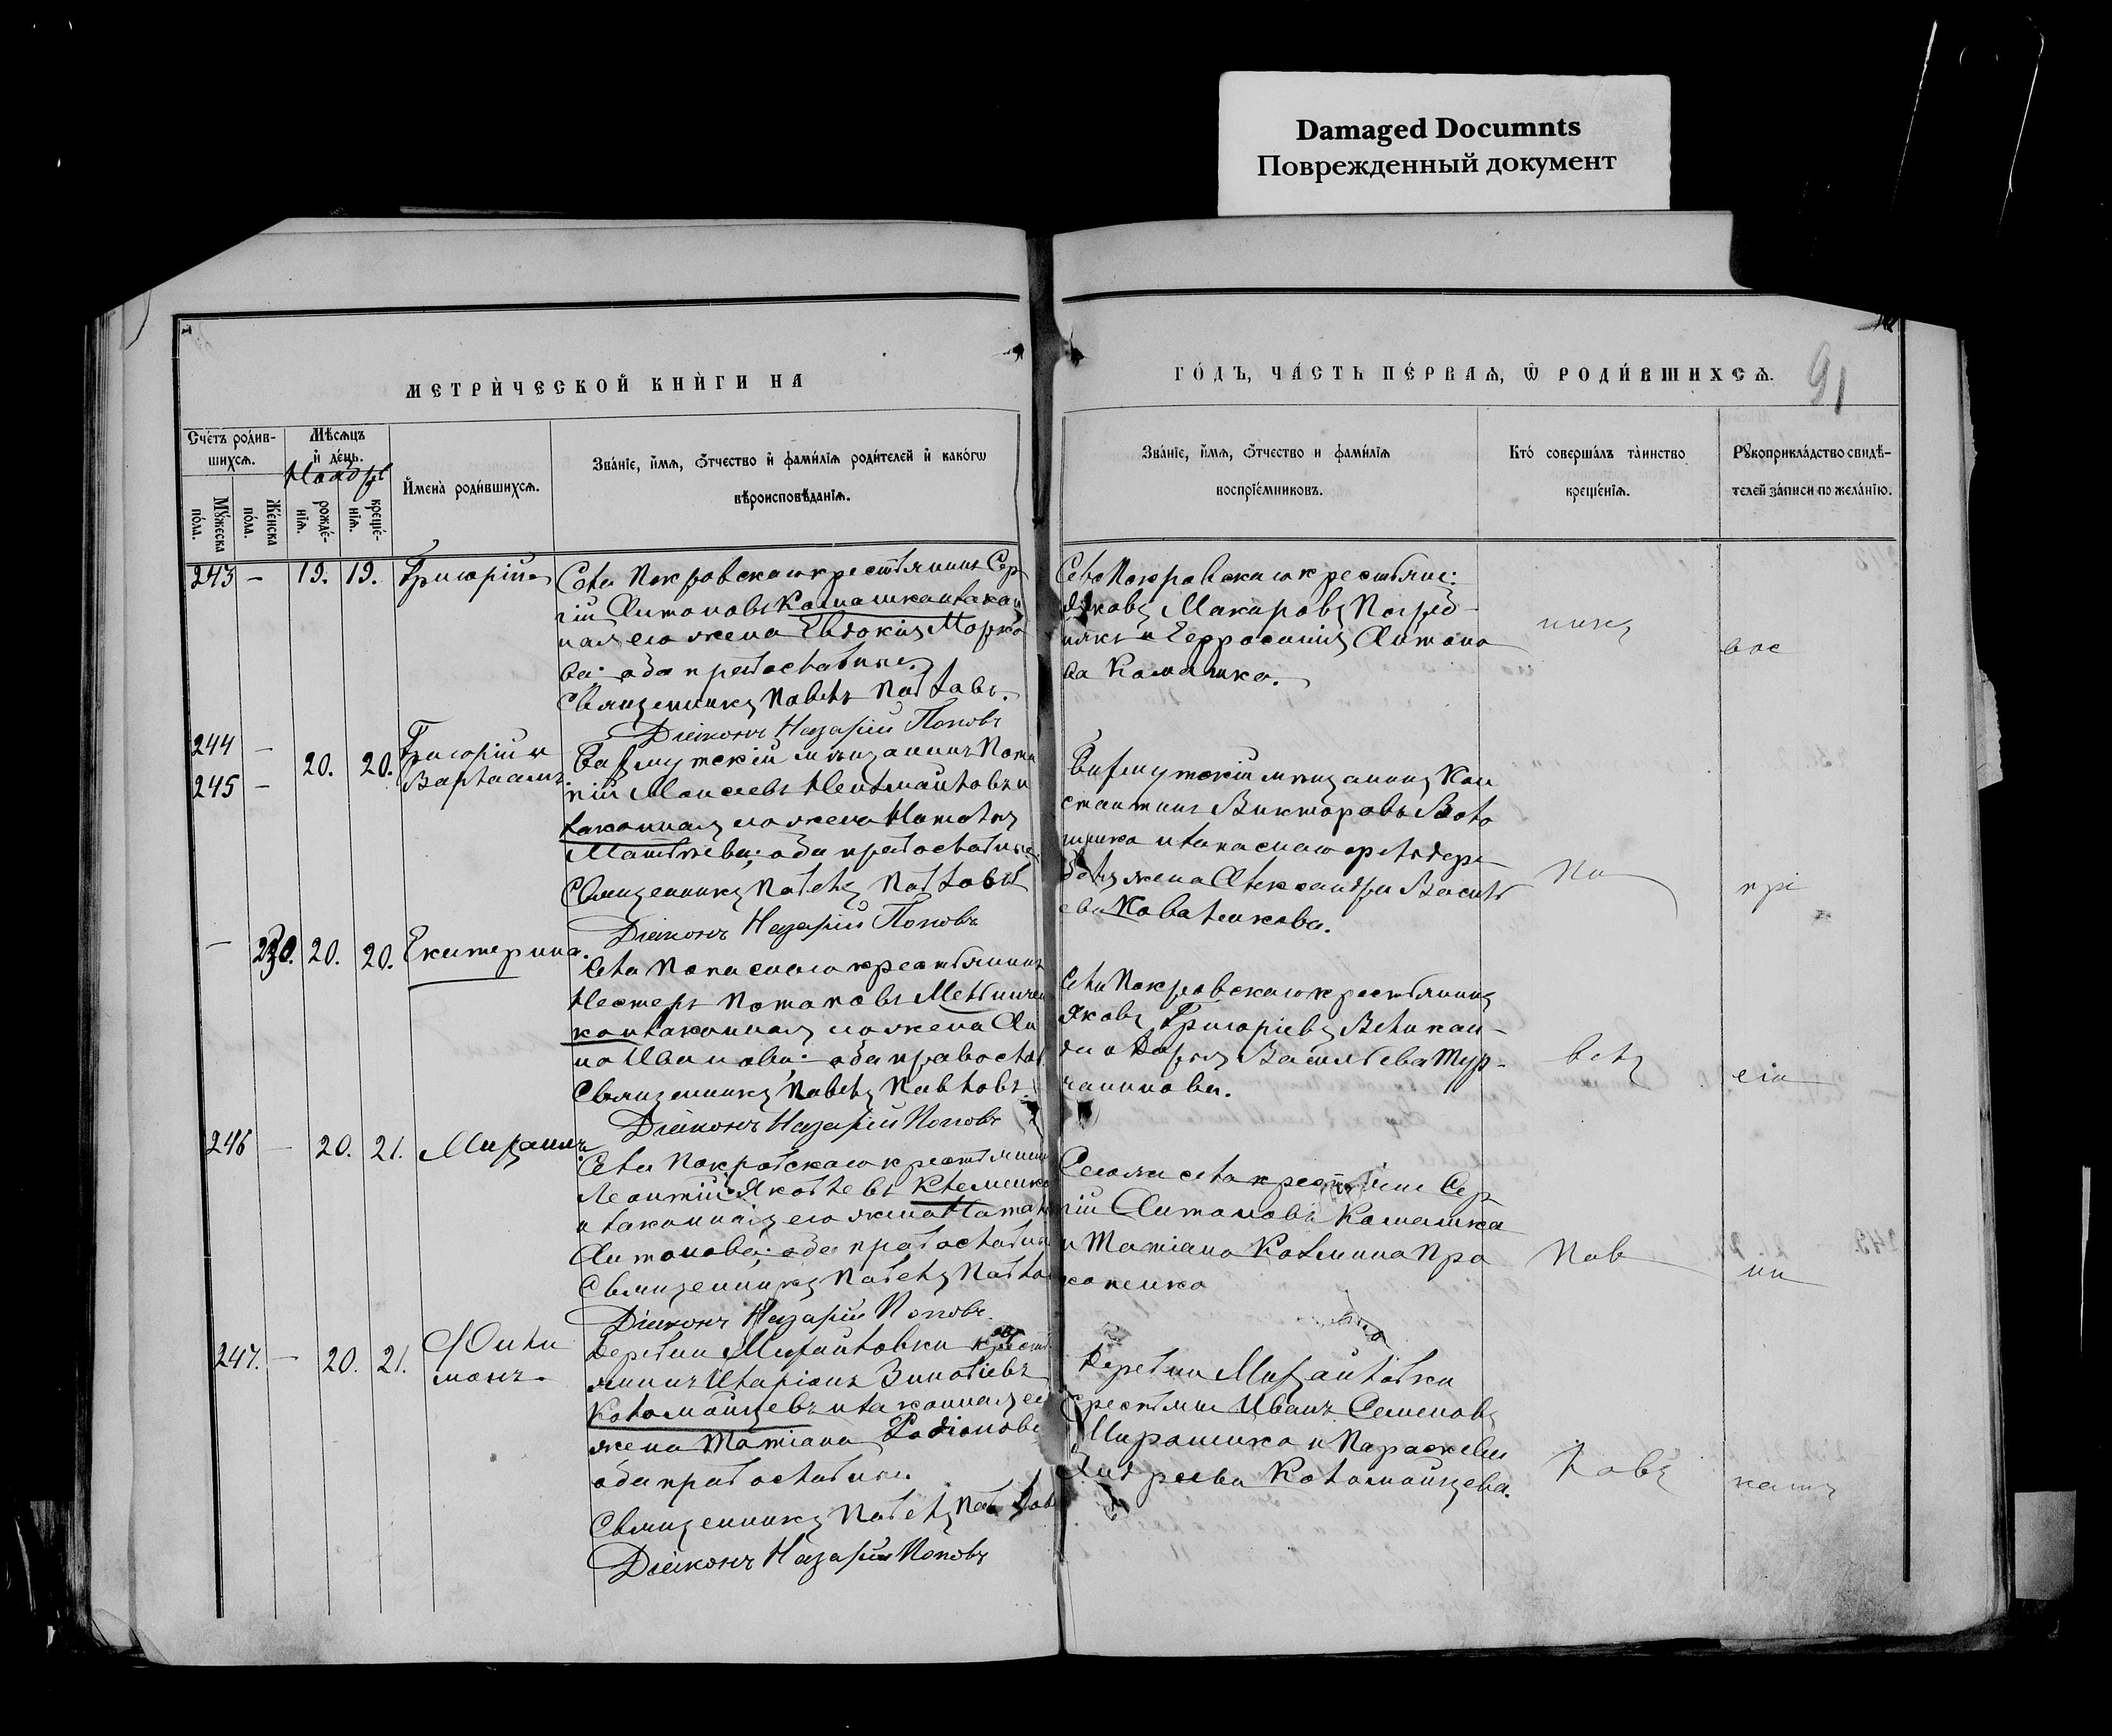 Damaged Documnts
Поврежденный документ
МЕТРИ́ЧЕСКОЙ КНИ́ГИ НА
ГО́ДЪ, ЧА́СТЬ ПЕ́РВАѦ, Ѿ РОДИ́ВШИХСѦ.
91
Сче́тъ роди́в-
шихсѧ.
Мꙋ́жеска по́ла.
Же́нска по́ла.
Мѣ́сѧцъ
и҆ де́нь.
Ноябрь
рожде́-
нїѧ.
креще́-
нїѧ.
И҆мена̀ роди́вшихсѧ.
Зва́нїе, и҆́мѧ, ѻ҆́тчество и҆ фами́лїѧ роди́телей и҆ како́гѡ
вѣроисповѣ́данїѧ.
Зва́нїе, и҆́мѧ, ѻ҆́тчество и фами́лїѧ
воспрїе́мниковъ.
Кто́ соверша́лъ та́инство
креще́нїѧ.
Рꙋкоприкла́дство свидѣ́-
телей за́писи по жела́нїю.
243 – 19. 19. Григорій
Села Покровскаго крестьянинъ Сер-
гій Антоновъ Камашка и закон
ная его жена Евдокія Марко
ва: оба православные.
Священникъ Павелъ Павловъ.
Діаконъ Назарій Поповъ
Села Покровскаго крестьяне:
Яковъ Макаровъ
и Ефросинія Антоно
ва Камашка.
никъ
вос
244 –
245 –
20. 20.
Григорій и
Варлаамъ.
Бахмутскій мѣщанинъ
Моисеевъ и
законная его жена Наталія
Матвѣева; оба православные.
Священникъ Павелъ Павловъ
Діаконъ Назарій Поповъ
Бахмутскій мѣщанинъ Кон
стантинъ Викторовъ
жена Александра Василь
ева Коваленкова.
Па
прі
– 230. 20. 20. Екатерина.
Села крестьянинъ
Несторъ Потаповъ
ко и законная его жена Ан
на Иванова: оба правосла
Священникъ Павелъ Павловъ.
Діаконъ Назарій Поповъ
Села Покровскаго крестьянинъ
Яковъ Григоріевъ Великан-
да и Дарья Васильева Тур-
чанинова.
велъ
емн
246 – 20. 21. Михаилъ.
Села Покровскаго крестьянин
Леонтій Яковлевъ Клеменко
и законная его жена Натал
Антонова; оба православны
Священникъ Павелъ Павло
Діаконъ Назарій Поповъ.
Того же села крестьяне Сер
гій Антоновъ Камашка
и Татіана Козмина Про
копенко
Пав
ни
247. – 20. 21.
Фили
монъ.
Деревни Михайловки крестъ
янинъ Иларіонъ Зиновіевъ
Коломойцевъ и законная ег
жена Татіана Родіонова
оба православные.
Священникъ Павелъ Павлов
Діаконъ Назарій Поповъ
Деревни Михайловки
крестьяне Иванъ Семеновъ
Мирошнико и Параскева
Андреева Коломойцева.
ловъ
камъ